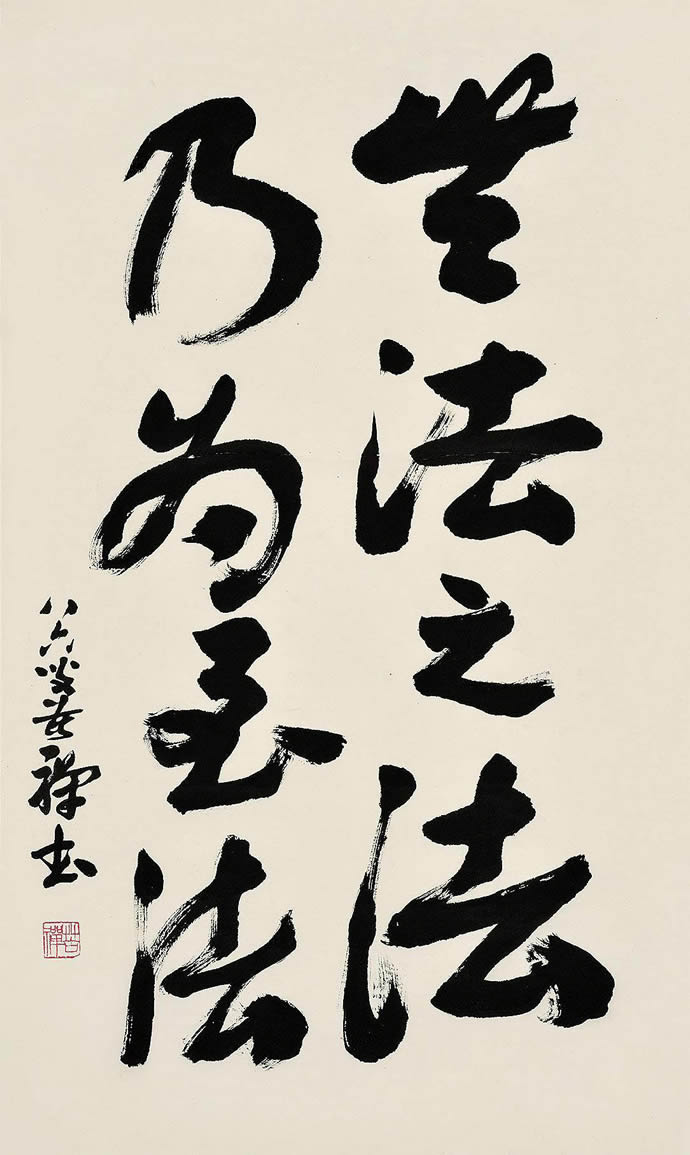 無法之法
乃為至法
八六叟苦禪書
苦禪